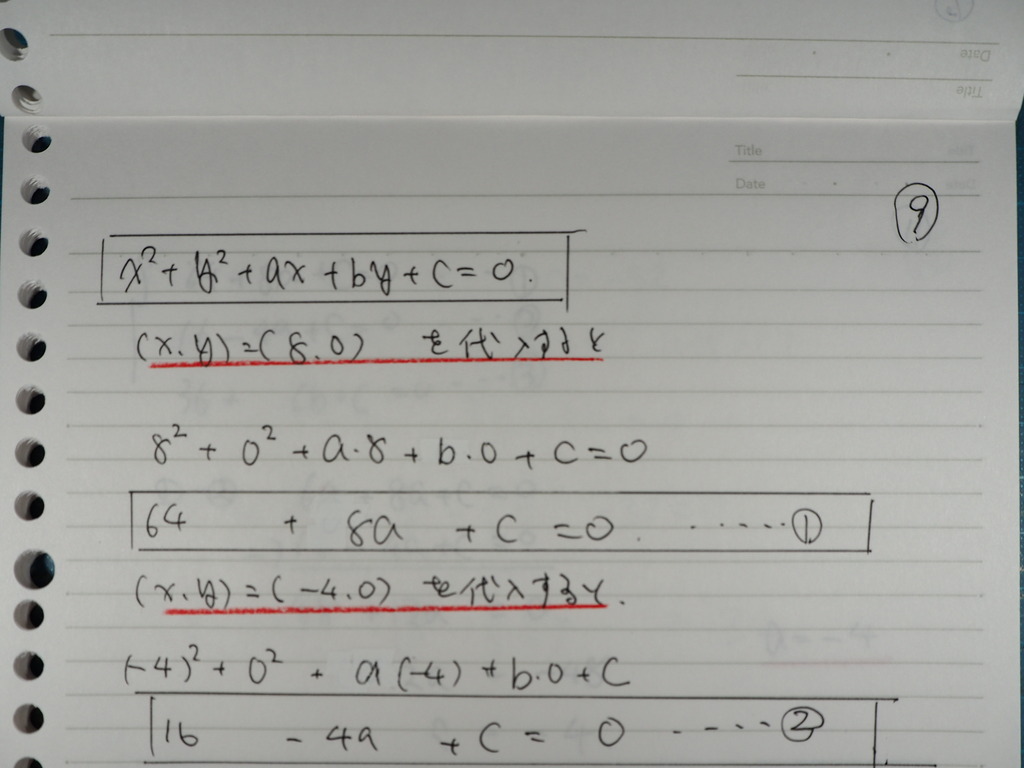 Date
Title
Title
Date
⑨
x² + y² + ax + by + c = 0.
(x.y)=(8.0) を代入すると
8² + 0² + a·8 + b·0 + c = 0
64 + 8a + c = 0 ······①
(x.y)=(-4.0) を代入すると.
(-4)² + 0² + a(-4) + b·0 + c
16 - 4a + c = 0 ----②